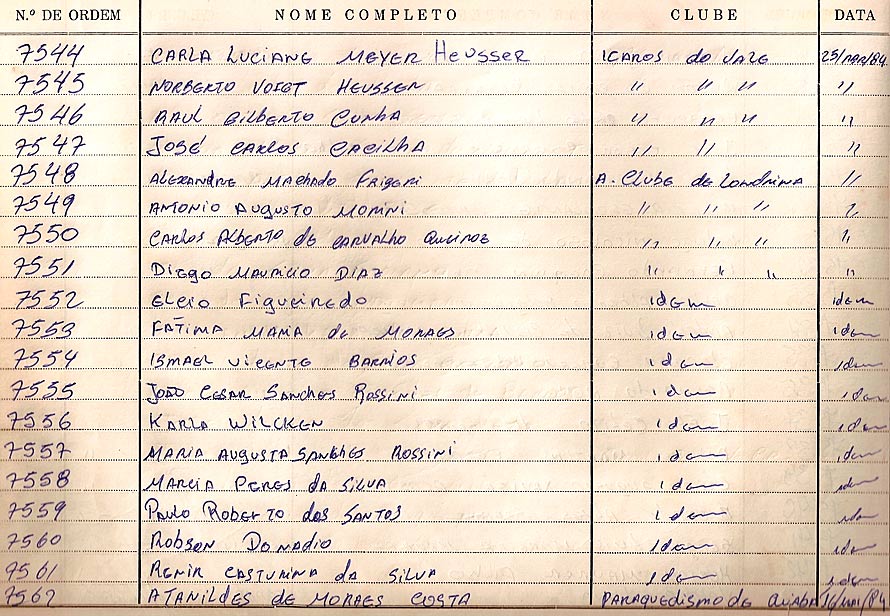 N.º DE ORDEM NOME COMPLETO CLUBE DATA
7544 CARLA LUCIANE MEYER HEUSSER ICAROS do VALE 25/MAR/84
7545 NORBERTO VOIGT HEUSSER " " " "
7546 RAUL GILBERTO CUNHA " " " "
7547 JOSÉ CARLOS CACILHA " " "
7548 ALEXANDRE MACHADO FRIGERI A. Clube de Londrina "
7549 ANTONIO AUGUSTO MORINI " " " "
7550 CARLOS ALBERTO de CARVALHO QUEIROZ " " " "
7551 DIEGO MAURICIO DIAZ " " " "
7552 ELCIO FIGUEIREDO idem idem
7553 FATIMA MARIA de MORAES idem idem
7554 ISMAEL VICENTE BARRIOS idem idem
7555 JOÃO CESAR SANCHES ROSSINI idem idem
7556 KARLA WILCKEN idem idem
7557 MARIA AUGUSTA SANCHES ROSSINI idem idem
7558 MARCIA PERES da SILVA idem idem
7559 PAULO ROBERTO dos SANTOS idem idem
7560 ROBSON DONADIO idem idem
7561 RENIR CASTURINA da SILVA idem idem
7562 ATANILDES DE MORAES COSTA PARAQUEDISMO de 16/MAI/84